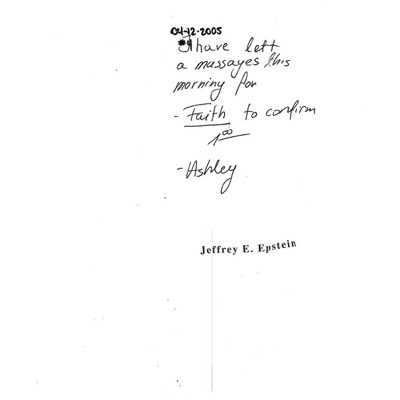 04-12-2005
I have left
a massayes this
morning for
- Faith to confirm
1⁰⁰
- Ashley
Jeffrey E. Epstein